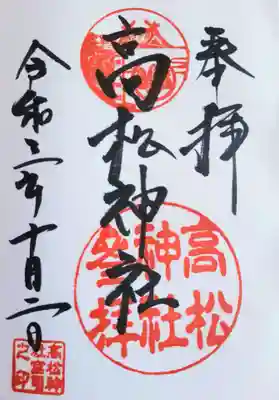 奉拝
高松神社
高松
神社
参拝
令和三年十月二日
高松神
社宮司
之印